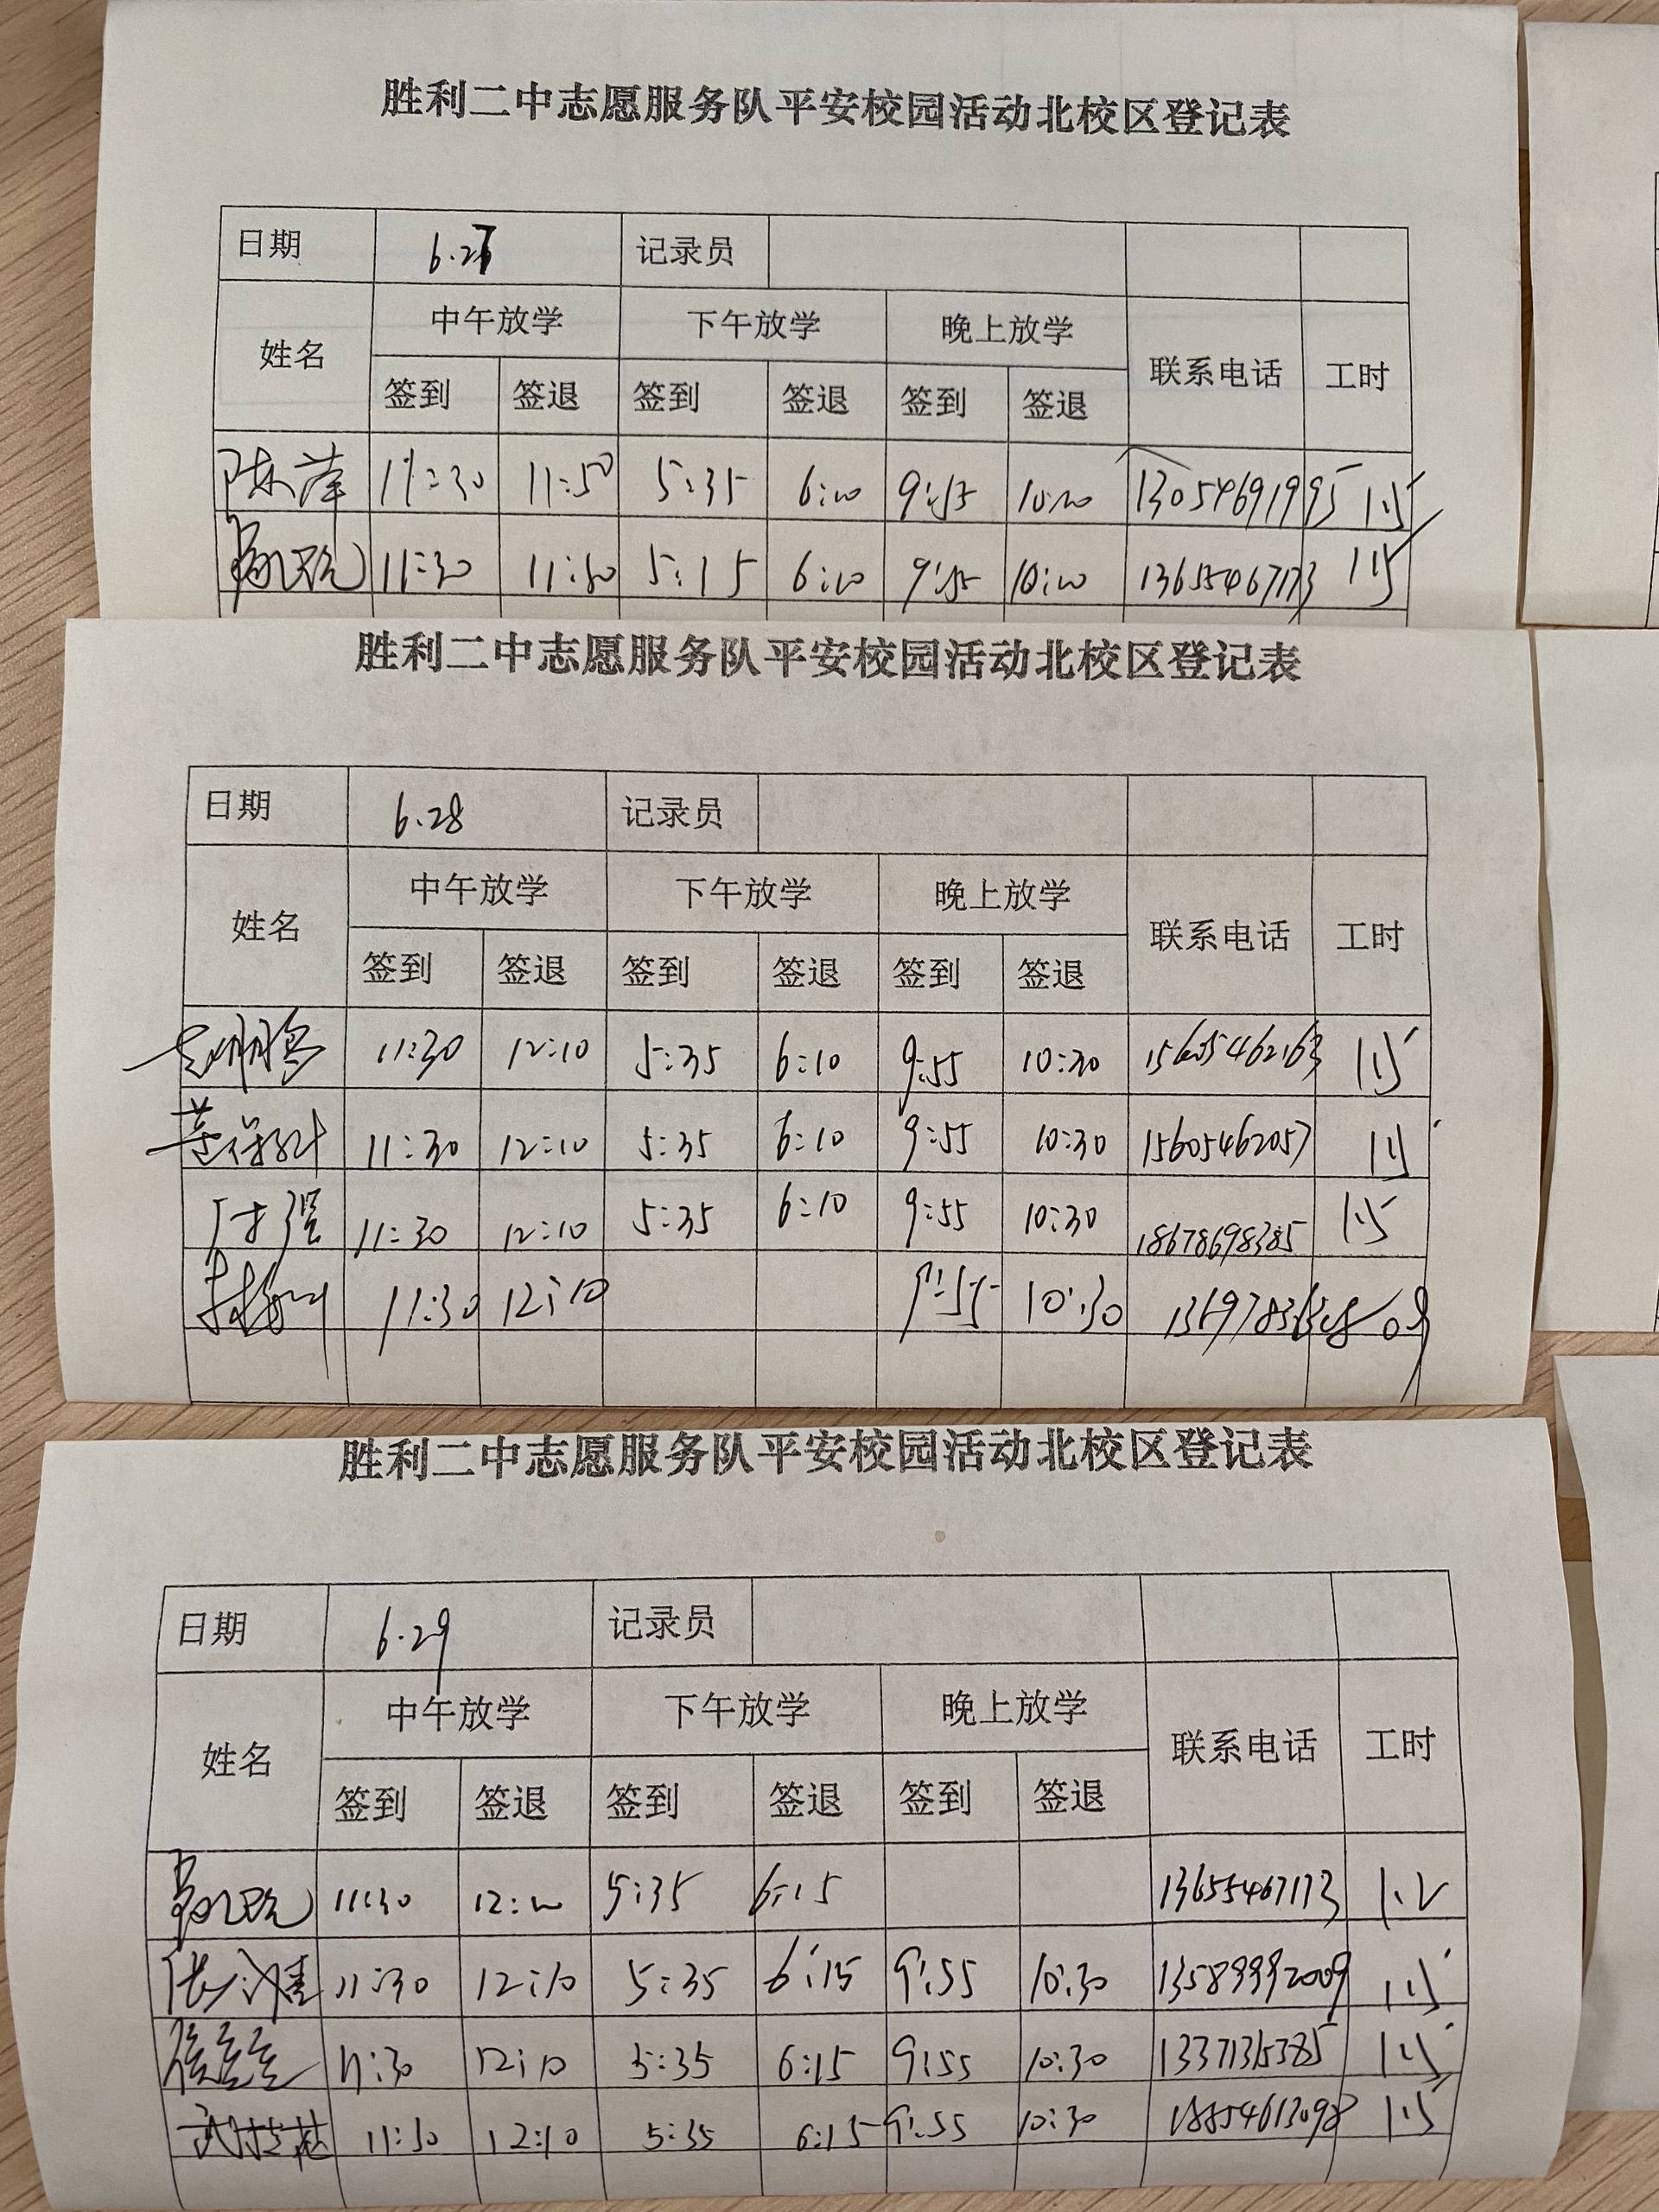 胜利二中志愿服务队平安校园活动北校区登记表
日期 6.27 记录员
中午放学 下午放学 晚上放学
姓名 联系电话 工时
签到 签退 签到 签退 签到 签退
陈萍 11:30 11:50 5:35 6:10 9:55 10:20 13054691995 1.5
11:30 11:50 5:15 6:10 9:55 10:20 13655467173 1.5
胜利二中志愿服务队平安校园活动北校区登记表
日期 6.28 记录员
中午放学 下午放学 晚上放学
姓名 联系电话 工时
签到 签退 签到 签退 签到 签退
11:30 12:10 5:35 6:10 9:55 10:30 15605462163 1.5
11:30 12:10 5:35 6:10 9:55 10:30 15605462057 1.5
付强 11:30 12:10 5:35 6:10 9:55 10:30 18678698385 1.5
11:30 12:10 9:55 10:30
胜利二中志愿服务队平安校园活动北校区登记表
日期 6.29 记录员
中午放学 下午放学 晚上放学
姓名 联系电话 工时
签到 签退 签到 签退 签到 签退
11:30 12:10 5:35 6:15 13655467173 1.2
11:30 12:10 5:35 6:15 9:55 10:30 13589992009 1.5
11:30 12:10 5:35 6:15 9:55 10:30 13371315385 1.5
11:30 12:10 5:35 6:15 9:55 10:30 18854613098 1.5